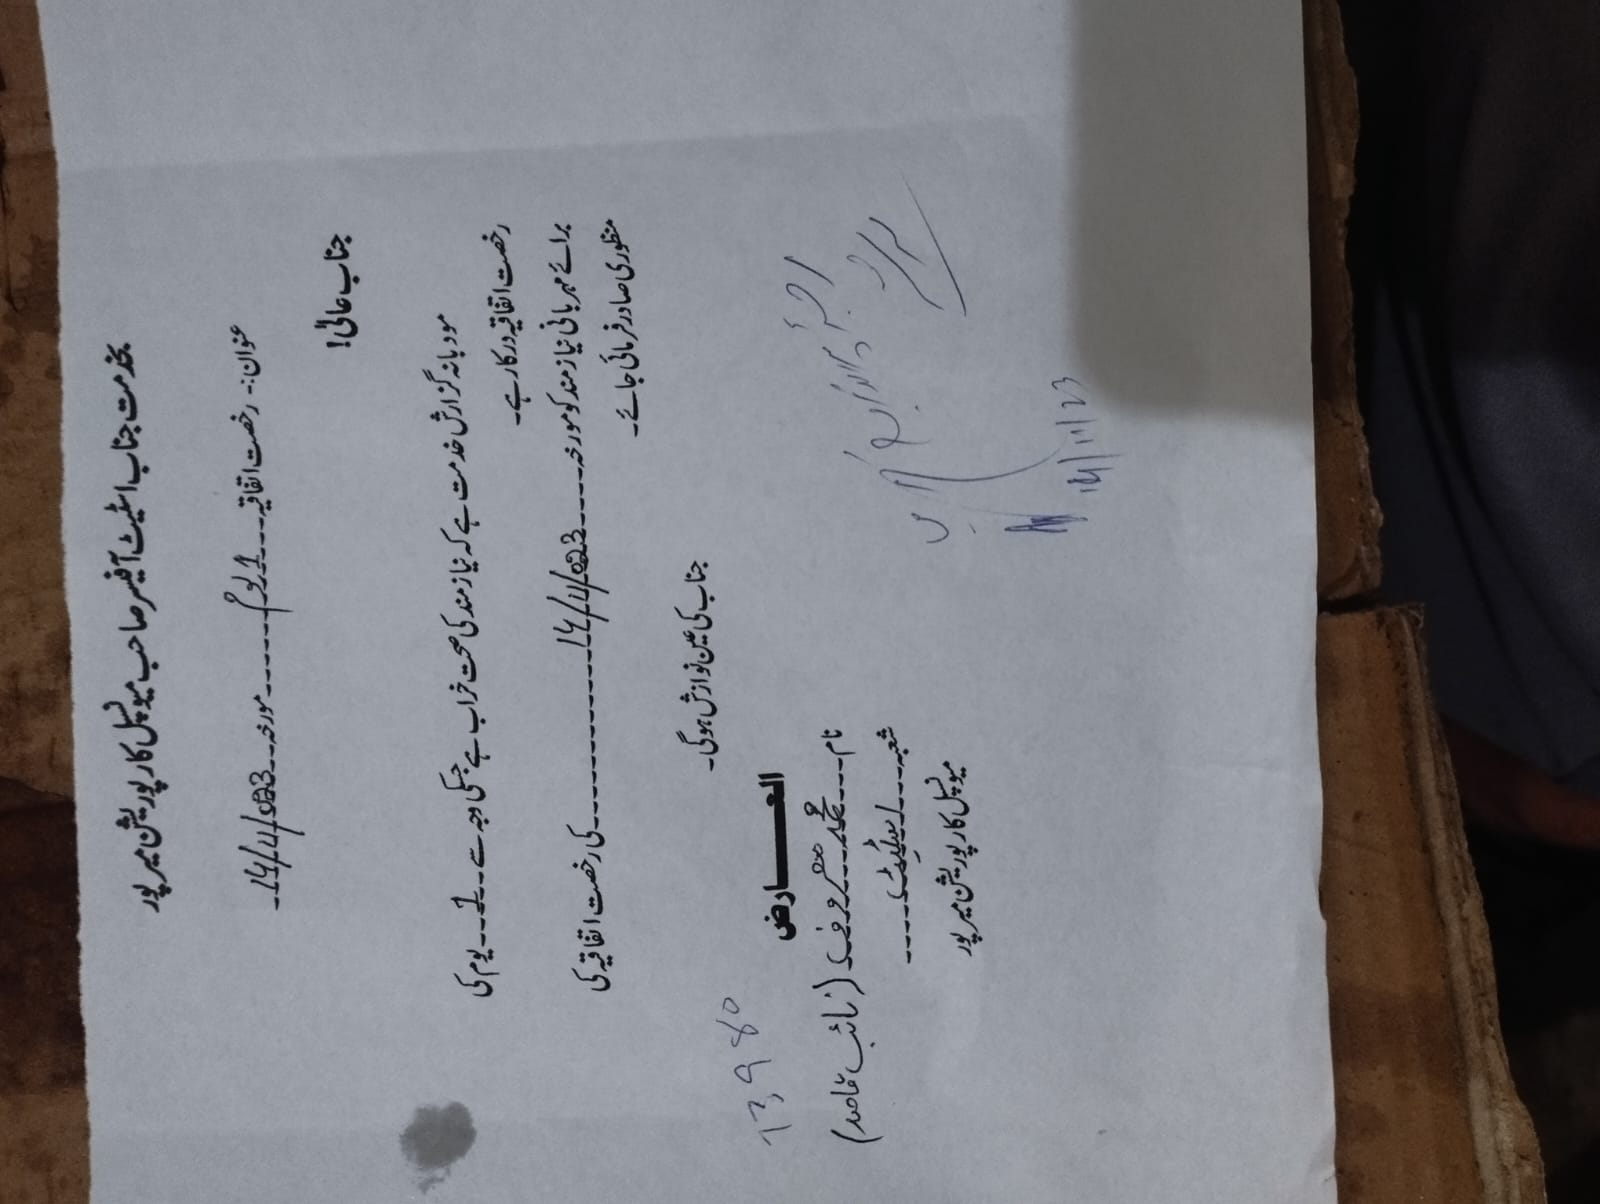 بخدمت جناب اسٹیٹ آفیسر صاحب میونسپل کارپوریشن میرپور
عنوان:- رخصت اتفاقیہ---1 یوم------مورخہ---14/11/023-
جناب عالی!
مودبانہ گزارش خدمت ہے کہ نیاز مند کی صحت خراب ہے جسکی وجہ سے---1---یوم کی
رخصت اتفاقیہ درکار ہے۔
برائے مہربانی نیاز مند کو مورخہ-----14/11/023---------------کی رخصت اتفاقیہ کی
منظوری صادر فرمائی جائے۔
جناب کی عین نوازش ہوگی۔
العـــــارض
نام----محمد معروف (نائب قاصد)
شعبہ---اسٹیٹ-----
میونسپل کارپوریشن میرپور
14/11/23